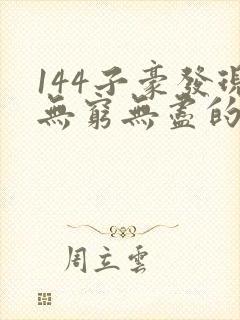 144子豪發現
無窮無盡的
周立雲